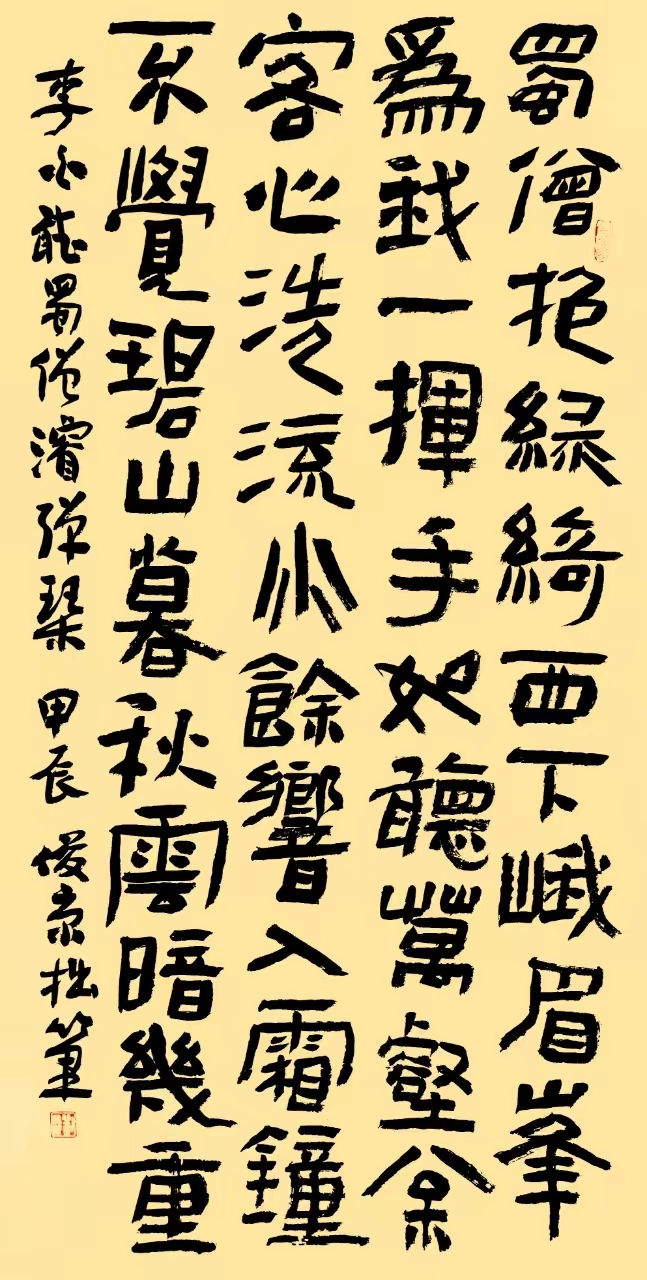 蜀僧抱緑綺西下峨眉峯
爲我一揮手如聽萬壑枀
客心洗流水餘響入霜鐘
不覺碧山暮秋雲暗幾重
李白聽蜀僧濬彈琴 甲辰 俊京拙筆